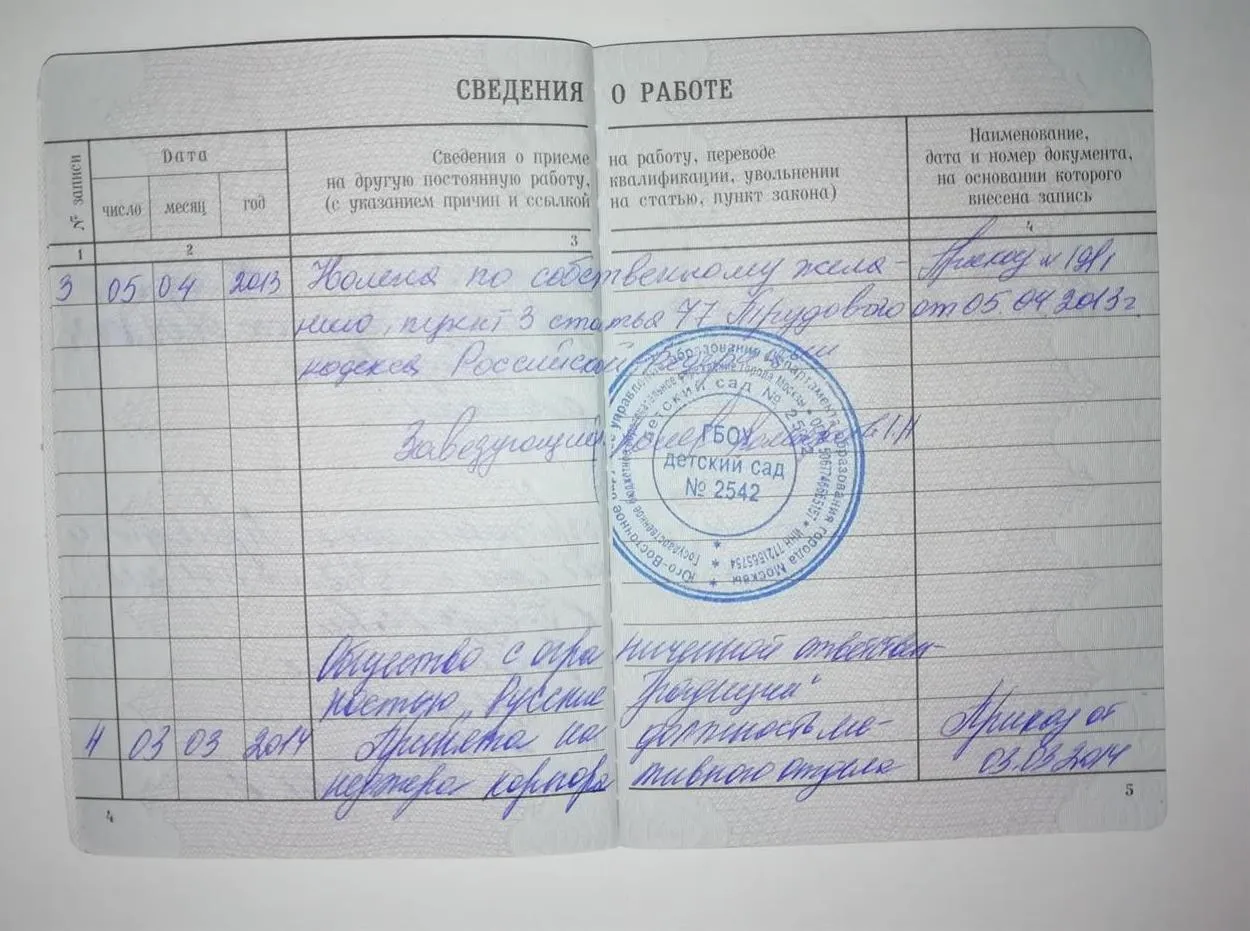 СВЕДЕНИЯ О РАБОТЕ
№ записи
Дата
число
месяц
год
Сведения о приеме на работу, переводе
на другую постоянную работу, квалификации, увольнении
(с указанием причин и ссылкой на статью, пункт закона)
Наименование,
дата и номер документа,
на основании которого
внесена запись
1 2 3 4
3 05 04 2013 по собственному жела- Приказ
нию, пункт 3 статья 77 Трудового от 05.04.2013 г
кодекса Российской Федерации
Заведующий
Юго-Восточное окружное управление образования Департамента образования города Москвы
Государственное бюджетное образовательное учреждение города Москвы
детский сад № 2542
ИНН 7721565754
ГБОУ
детский сад
№ 2542
Общество с ограниченной ответствен-
ностью „Русские традиции"
4 03 03 2014 Принята на должность ме- Приказ от
неджера корпоративного отдела 03.03.2014
4
5